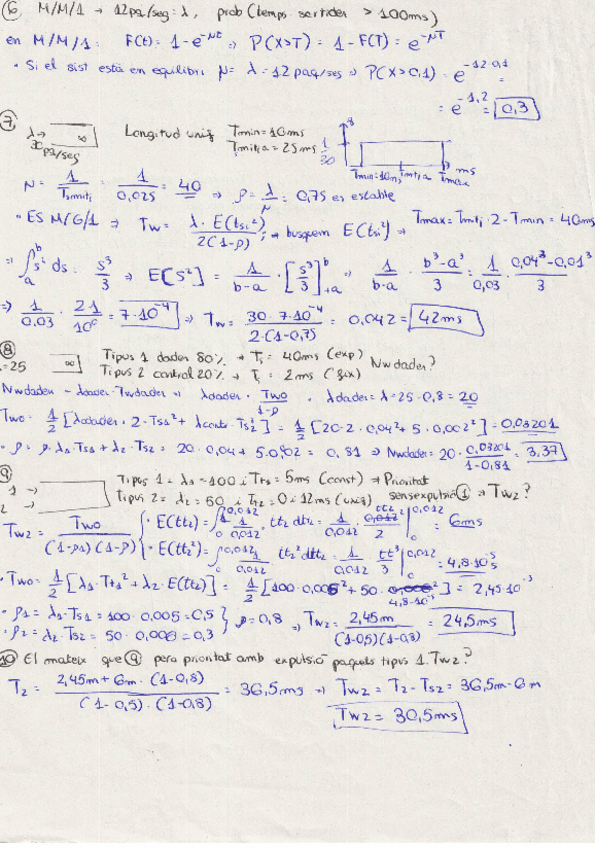 ⑥ M/M/1 → 12pq/seg = λ, prob (temps sortides > 100ms)
en M/M/1: F(t) = 1 - e^-μt ⇒ P(X>T) = 1 - F(T) = e^-μT
• Si el sist està en equilibri μ = λ = 12 paq/seg ⇒ P(X>0,1) = e^-12·0,1 =
= e^-1,2 = 0,3
⑦ λ→ 30pq/seg ∞ Longitud unif Tmin = 10ms
Tmitja = 25ms
1/30
Tmin=10m Tmitja Tmax ms
μ = 1/Tsmitj = 1/0,025 = 40 ⇒ ρ = λ/μ = 0,75 es estable
• ES M/G/1 ⇒ Tw = λ·E(ts²)/2(1-ρ) ; ⇒ busquem E(ts²) ⇒ Tmax = Tmitj·2 - Tmin = 40ms
⇒ ∫_a^b s² ds = s³/3 ⇒ E[s²] = 1/(b-a) · [s³/3]_a^b ⇒ 1/(b-a) · (b³-a³)/3 = 1/0,03 · (0,04³-0,01³)/3
⇒ 1/0,03 · 21/10⁶ = 7·10^-4 ⇒ Tw = 30·7·10^-4/2·(1-0,75) = 0,042 = 42ms
⑧ =25 ∞ Tipus 1 dades 80% → Ts = 40ms (exp) Nwdades?
Tipus 2 control 20% → Ts = 2ms (fix)
Nwdades = λdades·Twdades ⇒ λdades · Two/1-ρ • λdades = λ = 25·0,8 = 20
Two = 1/2 [λdades·2·Ts1² + λcont·Ts2²] = 1/2 [20·2·0,04² + 5·0,002²] = 0,03201
• ρ = λ1·Ts1 + λ2·Ts2 = 20·0,04 + 5·0,002 = 0,81 ⇒ Nwdades = 20·0,03201/1-0,81 = 3,37
⑨ 1 → Tipus 1 = λ1 = 100 i Ts1 = 5ms (const) ⇒ Prioritat
2 → Tipus 2 = λ2 = 50 i Ts2 = 0 i 12ms (unif) sens expulsió ① ⇒ Tw2?
Tw2 = Two/(1-ρ1)(1-ρ) • E(tt2) = ∫_0^0,012 1/0,012 · tt2 dtt2 = 1/0,012 · tt2²/2 |_0^0,012 = 6ms
• E(tt2²) = ∫_0^0,012 1/0,012 · tt2² dtt2 = 1/0,012 · tt³/3 |_0^0,012 = 4,8·10^-5
• Two = 1/2 [λ1·Ts1² + λ2·E(tt2)] = 1/2 [100·0,005² + 50·4,8·10^-5] = 2,45·10^-3
• ρ1 = λ1·Ts1 = 100·0,005 = 0,5 } ρ = 0,8 ⇒ Tw2 = 2,45m/(1-0,5)(1-0,8) = 24,5ms
• ρ2 = λ2·Ts2 = 50·0,006 = 0,3
⑩ El mateix que ⑨ pero prioritat amb expulsió paquets tipus 1. Tw2?
T2 = 2,45m + 6m·(1-0,8)/(1-0,5)·(1-0,8) = 36,5ms ⇒ Tw2 = T2 - Ts2 = 36,5m - 6m
Tw2 = 30,5ms